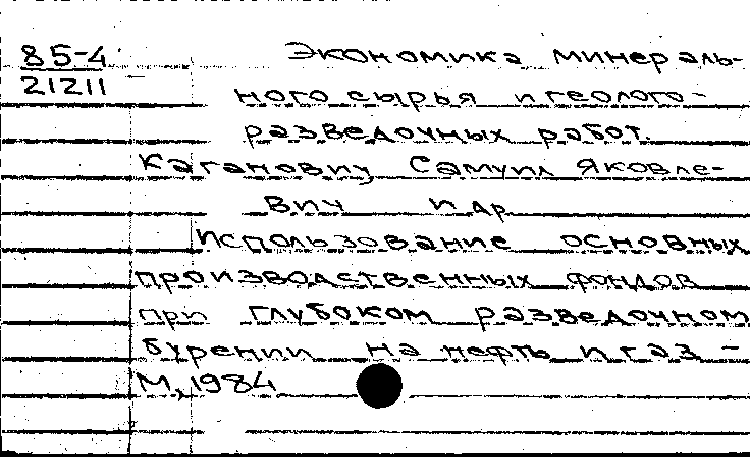 85-4
21211
Экономика минераль-
ного сырья и геолого-
разведочных работ.
Каганович Самуил Яковле-
вич и др
Использование основных
производственных фондов
при глубоком разведочном
бурении на нефть и газ -
М, 1984